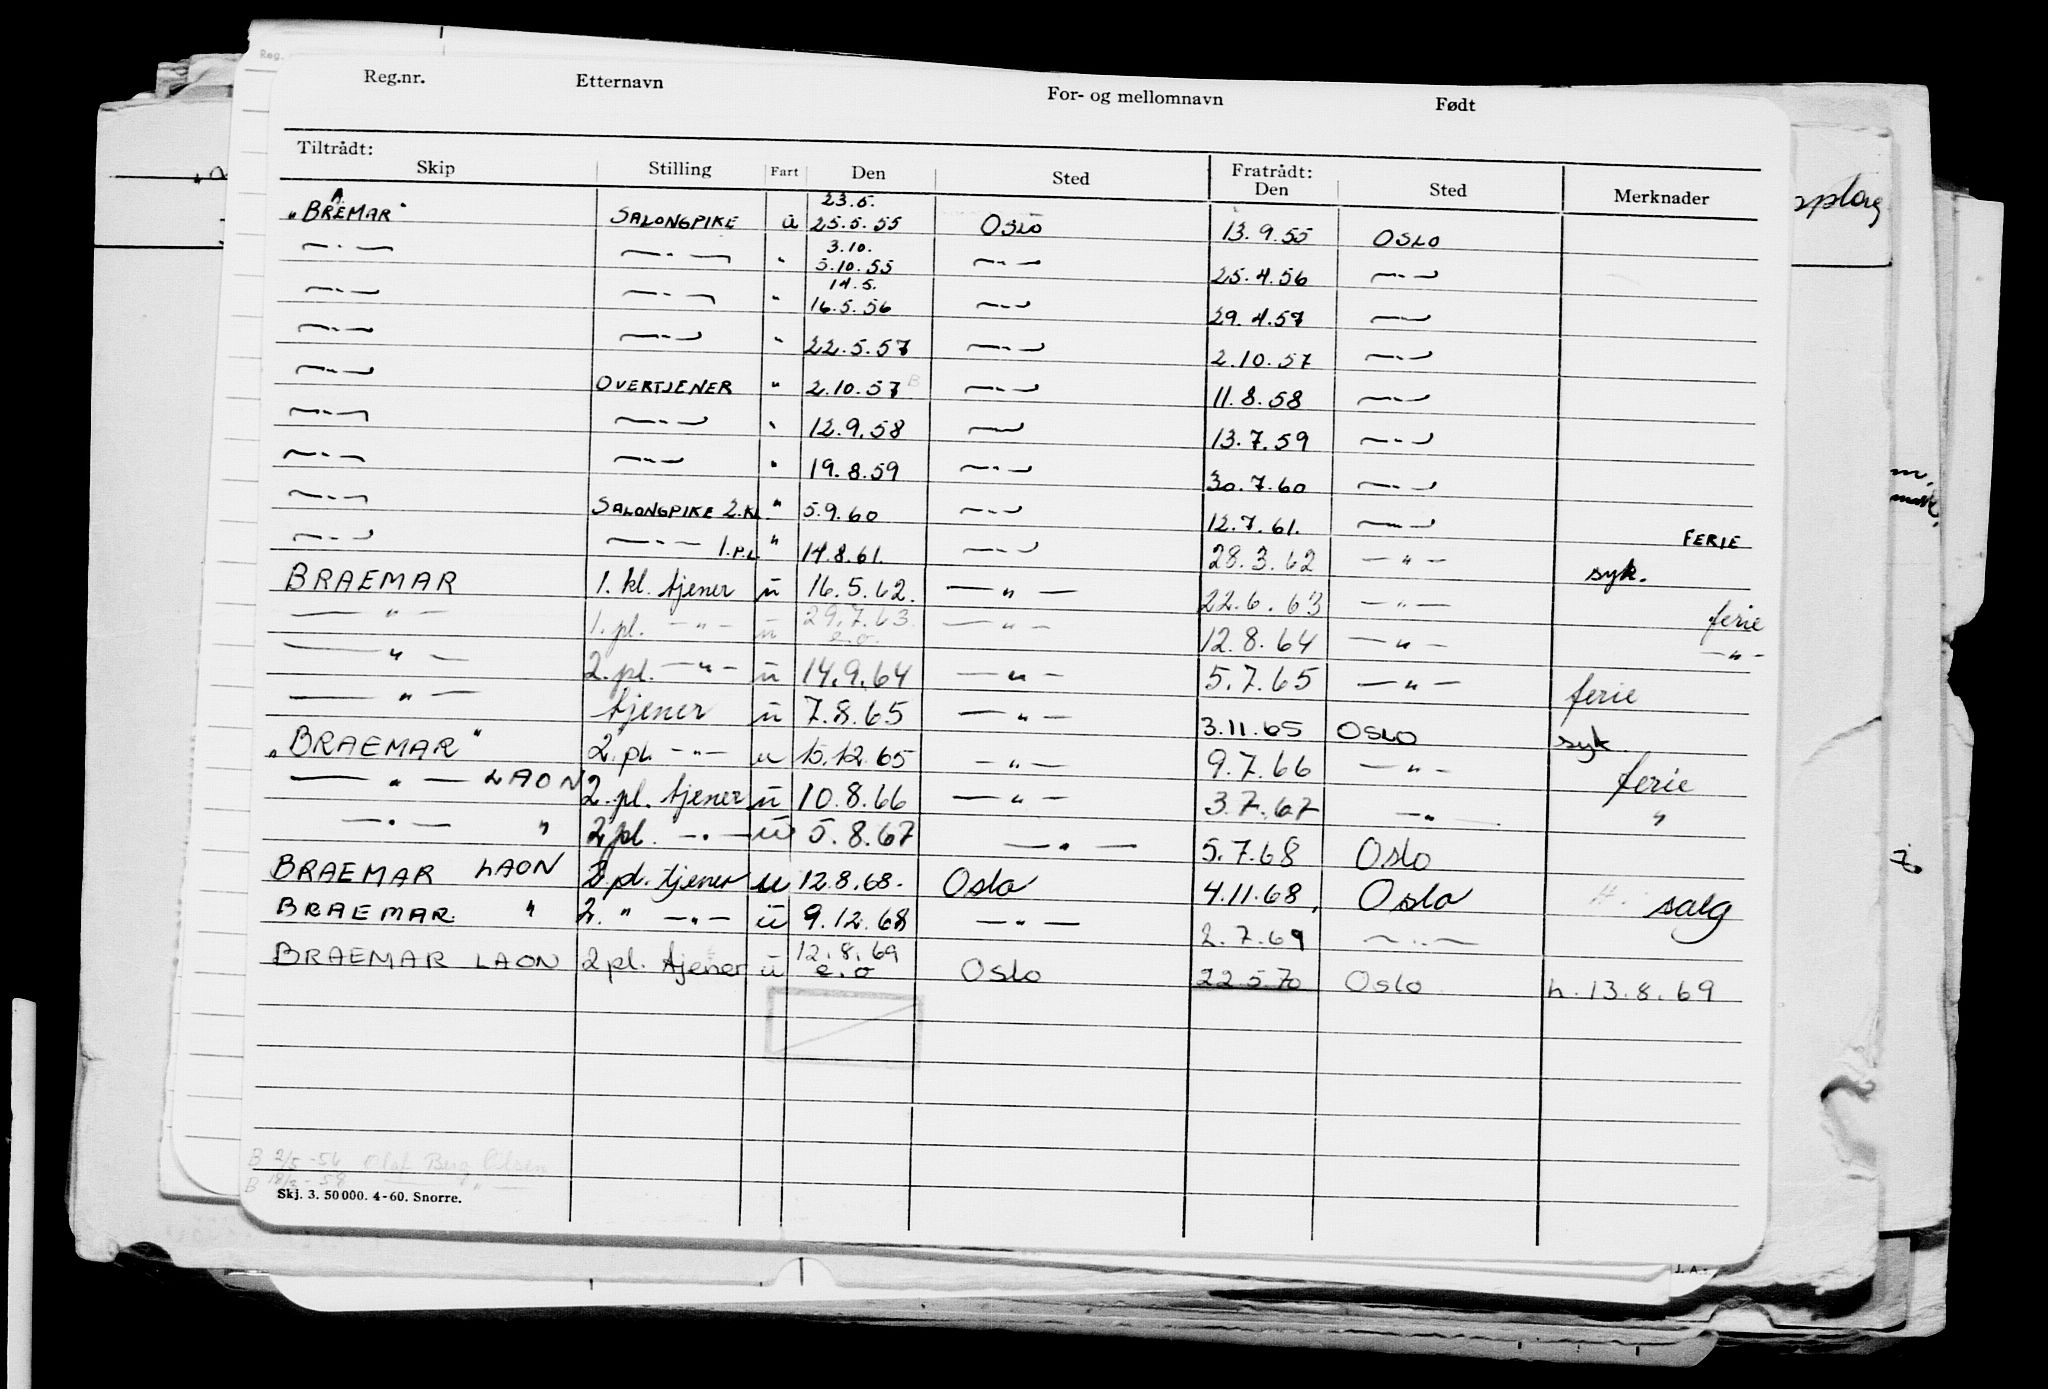 Reg.nr. Etternavn For- og mellomnavn Født
Tiltrådt: Fratrådt:
Skip Stilling Fart Den Sted Den Sted Merknader
"BRAEMAR" SALONGPIKE u 23.5. 25.5.55 OSLO 13.9.55 OSLO
—"— —"— " 3.10. 5.10.55 —"— 25.4.56 —"—
—"— —"— " 14.5. 16.5.56 —"— 29.4.57 —"—
—"— —"— " 22.5.57 —"— 2.10.57 —"—
—"— OVERTJENER " 2.10.57 B —"— 11.8.58 —"—
—"— —"— " 12.9.58 —"— 13.7.59 —"—
—"— —"— " 19.8.59 —"— 30.7.60 —"—
—"— SALONGPIKE 2.KL " 5.9.60 —"— 12.7.61. —"— FERIE
—"— —"— 1.P.L " 14.8.61. —"— 28.3.62 —"— syk.
BRAEMAR 1. kl. tjener u 16.5.62. —"— 22.6.63 —"— ferie
—"— 1. pl. —"— u 29.7.63. e.o. —"— 12.8.64 —"— —"—
—"— 2. pl. —"— u 14.9.64 —"— 5.7.65 —"— ferie
—"— tjener u 7.8.65 —"— 3.11.65 OSLO syk.
"BRAEMAR" 2. pl. —"— u 15.12.65 —"— 9.7.66 —"— ferie
—"— LAON 2. pl. tjener u 10.8.66 —"— 3.7.67 —"— "
—"— " 2 pl. —"— u 5.8.67 —"— 5.7.68 Oslo
BRAEMAR LAON 2 pl. tjener u 12.8.68. Oslo 4.11.68. Oslo salg
BRAEMAR " 2. " —"— u 9.12.68 —"— 2.7.69 —"—
BRAEMAR LAON 2 pl. tjener u 12.8.69 e.o Oslo 22.5.70 Oslo h. 13.8.69
B 2/5-56 Olaf Berg Olsen
B 18/3-58 —"—
Skj. 3. 50 000. 4-60. Snorre.
J. A.